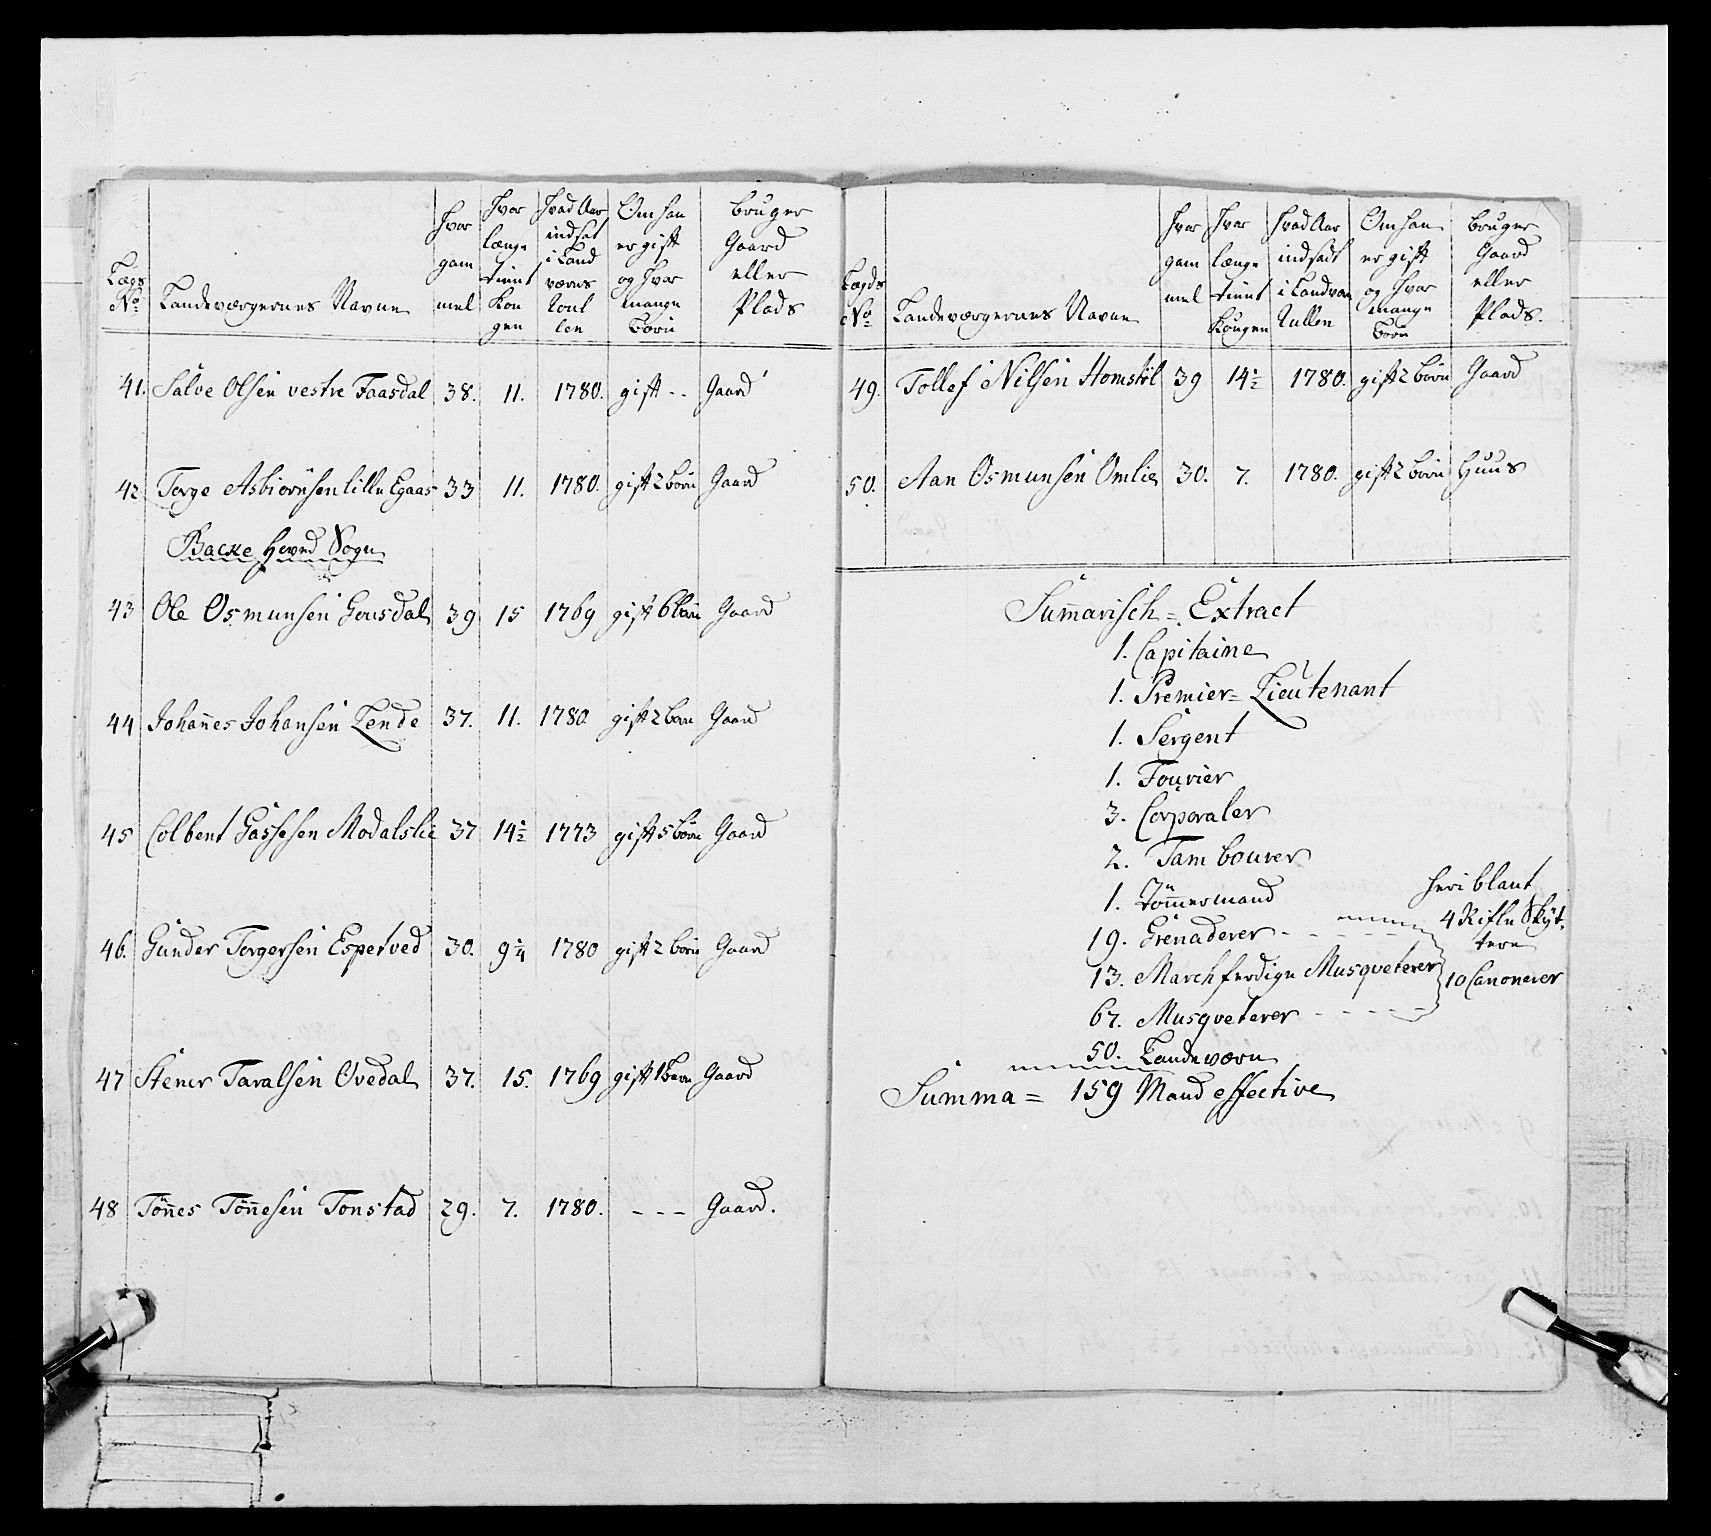 Lægs No | Landeværgernes Navne | Hvor gam mel | Hvor længe tient Kon gen | Hvad Aar indsat i Land værns Roul len | Om han er gift og Hvor mange Børn | bruger Gaard eller Plads
41. Salve Olsen vestre Faasdal | 38. | 11. | 1780. | gift - - | Gaard
42 Torge Asbiørnsen lille Egaas | 33 | 11. | 1780. | gift 2 børn | Gaard
Backe Hoved Sogn
43 Ole Osmunsen Gousdal | 39 | 15 | 1769 | gift 6 børn | Gaard
44 Johañes Johansen Lende | 37. | 11. | 1780 | gift 2 børn | Gaard
45 Colbent Gassesen Modalslie | 37 | 14½ | 1773 | gift 5 børn | Gaard
46. Gunder Torgersen Espetved | 30. | 9¼ | 1780 | gift 2 børn | Gaard
47 Stener Taralsen Ovedal | 37. | 15. | 1769 | gift 1 børn | Gaard
48 Töñes Töñesen Tonstad | 29. | 7. | 1780. | - - - | Gaard.
Lægds No | Landeværgernes Navne | Hvor gam mel | Hvor længe tient Kongen | Hvad Aar indsadt i Landvær Rullen | Om han er gift og Hvor mange Børn | bruger Gaard eller Plads.
49. Tollef Nilsen Homstöl | 39 | 14½ | 1780. | gift 2 børn | Gaard
50. Aan Osmunsen Omlie | 30. | 7. | 1780. | gift 2 børn | Huus
Sum̃arisch = Extract
1. Capitaine
1. Premier = Lieutenant
1. Sergent
1. Fourier
3. Corporaler
2. Tambourer
1. Töm̃ermand
19. Grenaderer - - - - -
13. Marchferdige Musqveterer
67. Musqveterer - - - - -
heriblant
4 Rifle Skÿt-
tere
10 Canonerer
50. Landeværn
Summa = 159 Mand effective